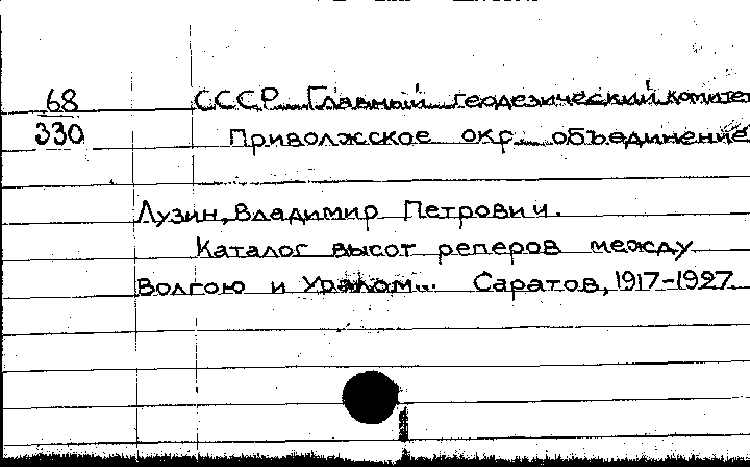 68 СССР. Главный геодезический комитет
330 Приволжское окр. объединение
Лузин, Владимир Петрович.
Каталог высот реперов между
Волгою и Уралом... Саратов, 1917-1927.